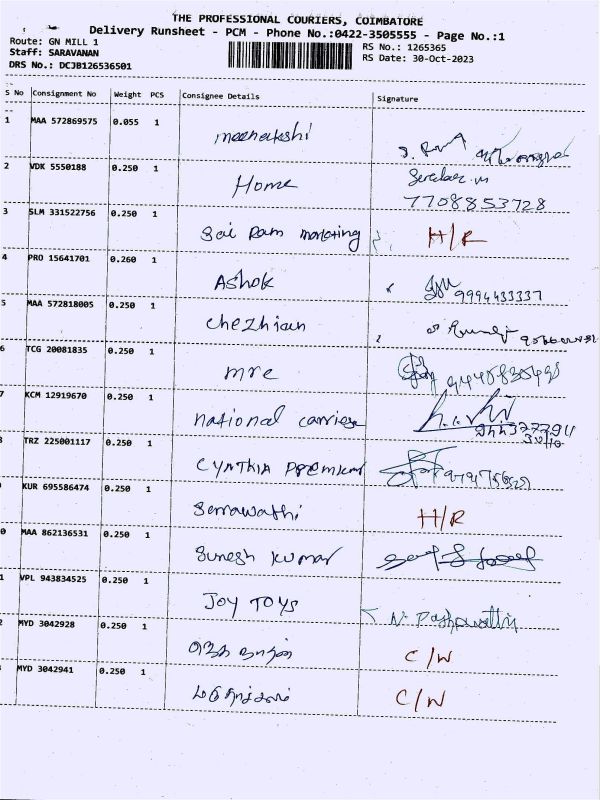 THE PROFESSIONAL COURIERS, COIMBATORE
Delivery Runsheet - PCM - Phone No.:0422-3505555 - Page No.:1
Route: GN MILL 1 RS No.: 1265365
Staff: SARAVANAN RS Date: 30-Oct-2023
DRS No.: DCJB126536501
S No Consignment No Weight PCS Consignee Details Signature
1 MAA 572869575 0.055 1 meenakshi
2 VDK 5550188 0.250 1 Home
7708853728
3 SLM 331522756 0.250 1 Sai Ram marketing H/R
4 PRO 15641701 0.260 1 Ashok 9994433337
5 MAA 572818005 0.250 1 chezhian
6 TCG 20081835 0.250 1 mre
7 KCM 12919670 0.250 1 national carriers
30/10
TRZ 225001117 0.250 1 CYNTHIA PREMIUM
KUR 695586474 0.250 1 H/R
0 MAA 862136531 0.250 1 Suresh Kumar
1 VPL 943834525 0.250 1 JOY TOYS
2 MYD 3042928 0.250 1 C/W
MYD 3042941 0.250 1 C/W